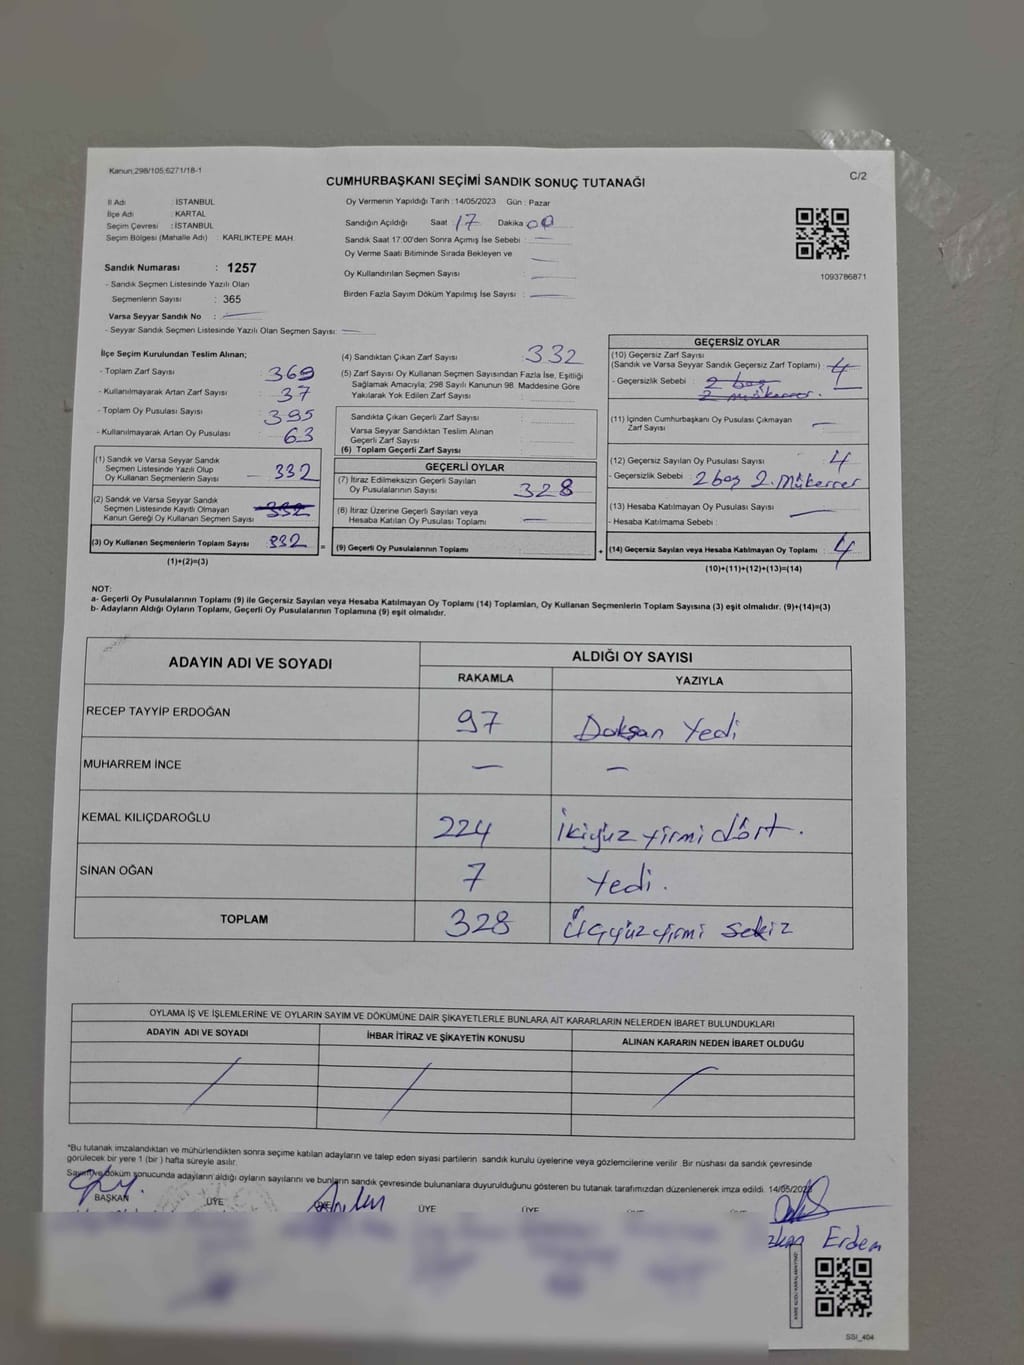 Kanun;298/105;6271/18-1
CUMHURBAŞKANI SEÇİMİ SANDIK SONUÇ TUTANAĞI
C/2
İl Adı : İSTANBUL
İlçe Adı : KARTAL
Seçim Çevresi : İSTANBUL
Seçim Bölgesi (Mahalle Adı) : KARLIKTEPE MAH.
Sandık Numarası : 1257
- Sandık Seçmen Listesinde Yazılı Olan
Seçmenlerin Sayısı : 365
Varsa Seyyar Sandık No :
- Seyyar Sandık Seçmen Listesinde Yazılı Olan Seçmen Sayısı:
Oy Vermenin Yapıldığı Tarih : 14/05/2023 Gün : Pazar
Sandığın Açıldığı Saat : 17 Dakika : 00
Sandık Saat 17:00'den Sonra Açımış İse Sebebi :
Oy Verme Saati Bitiminde Sırada Bekleyen ve
Oy Kullandırılan Seçmen Sayısı :
Birden Fazla Sayım Döküm Yapılmış İse Sayısı :
1093786871
İlçe Seçim Kurulundan Teslim Alınan;
- Toplam Zarf Sayısı : 369
- Kullanılmayarak Artan Zarf Sayısı : 37
- Toplam Oy Pusulası Sayısı : 395
- Kullanılmayarak Artan Oy Pusulası : 63
(1) Sandık ve Varsa Seyyar Sandık
Seçmen Listesinde Yazılı Olup
Oy Kullanan Seçmenlerin Sayısı 332
(2) Sandık ve Varsa Seyyar Sandık
Seçmen Listesinde Kayıtlı Olmayan
Kanun Gereği Oy Kullanan Seçmen Sayısı 332
(3) Oy Kullanan Seçmenlerin Toplam Sayısı 332
(1)+(2)=(3)
=
(4) Sandıktan Çıkan Zarf Sayısı : 332
(5) Zarf Sayısı Oy Kullanan Seçmen Sayısından Fazla İse, Eşitliği
Sağlamak Amacıyla; 298 Sayılı Kanunun 98. Maddesine Göre
Yakılarak Yok Edilen Zarf Sayısı :
Sandıkta Çıkan Geçerli Zarf Sayısı :
Varsa Seyyar Sandıktan Teslim Alınan
Geçerli Zarf Sayısı :
(6) Toplam Geçerli Zarf Sayısı :
GEÇERLİ OYLAR
(7) İtiraz Edilmeksizin Geçerli Sayılan
Oy Pusulalarının Sayısı : 328
(8) İtiraz Üzerine Geçerli Sayılan veya
Hesaba Katılan Oy Pusulası Toplamı :
(9) Geçerli Oy Pusulalarının Toplamı :
+
GEÇERSİZ OYLAR
(10) Geçersiz Zarf Sayısı
(Sandık ve Varsa Seyyar Sandık Geçersiz Zarf Toplamı) : 4
- Geçersizlik Sebebi : 2 boş
2 mükerrer.
(11) İçinden Cumhurbaşkanı Oy Pusulası Çıkmayan
Zarf Sayısı :
(12) Geçersiz Sayılan Oy Pusulası Sayısı : 4
- Geçersizlik Sebebi : 2 boş 2. Mükerrer
(13) Hesaba Katılmayan Oy Pusulası Sayısı :
- Hesaba Katılmama Sebebi :
(14) Geçersiz Sayılan veya Hesaba Katılmayan Oy Toplamı : 4
(10)+(11)+(12)+(13)=(14)
NOT:
a- Geçerli Oy Pusulalarının Toplamı (9) ile Geçersiz Sayılan veya Hesaba Katılmayan Oy Toplamı (14) Toplamları, Oy Kullanan Seçmenlerin Toplam Sayısına (3) eşit olmalıdır. (9)+(14)=(3)
b- Adayların Aldığı Oyların Toplamı, Geçerli Oy Pusulalarının Toplamına (9) eşit olmalıdır.
ADAYIN ADI VE SOYADI
ALDIĞI OY SAYISI
RAKAMLA YAZIYLA
RECEP TAYYİP ERDOĞAN 97 Doksan Yedi
MUHARREM İNCE — —
KEMAL KILIÇDAROĞLU 224 İkiyüz yirmi dört.
SİNAN OĞAN 7 Yedi.
TOPLAM 328 Üçyüzyirmi sekiz
OYLAMA İŞ VE İŞLEMLERİNE VE OYLARIN SAYIM VE DÖKÜMÜNE DAİR ŞİKAYETLERLE BUNLARA AİT KARARLARIN NELERDEN İBARET BULUNDUKLARI
ADAYIN ADI VE SOYADI İHBAR İTİRAZ VE ŞİKAYETİN KONUSU ALINAN KARARIN NEDEN İBARET OLDUĞU
*Bu tutanak imzalandıktan ve mühürlendikten sonra seçime katılan adayların ve talep eden siyasi partilerin sandık kurulu üyelerine veya gözlemcilerine verilir. Bir nüshası da sandık çevresinde
görülecek bir yere 1 (bir) hafta süreyle asılır.
Sayım ve döküm sonucunda adayların aldığı oyların sayılarını ve bunların sandık çevresinde bulunanlara duyurulduğunu gösteren bu tutanak tarafımızdan düzenlenerek imza edildi. 14/05/2023
BAŞKAN ÜYE ÜYE ÜYE ÜYE ÜYE
Erdem
SSI_404